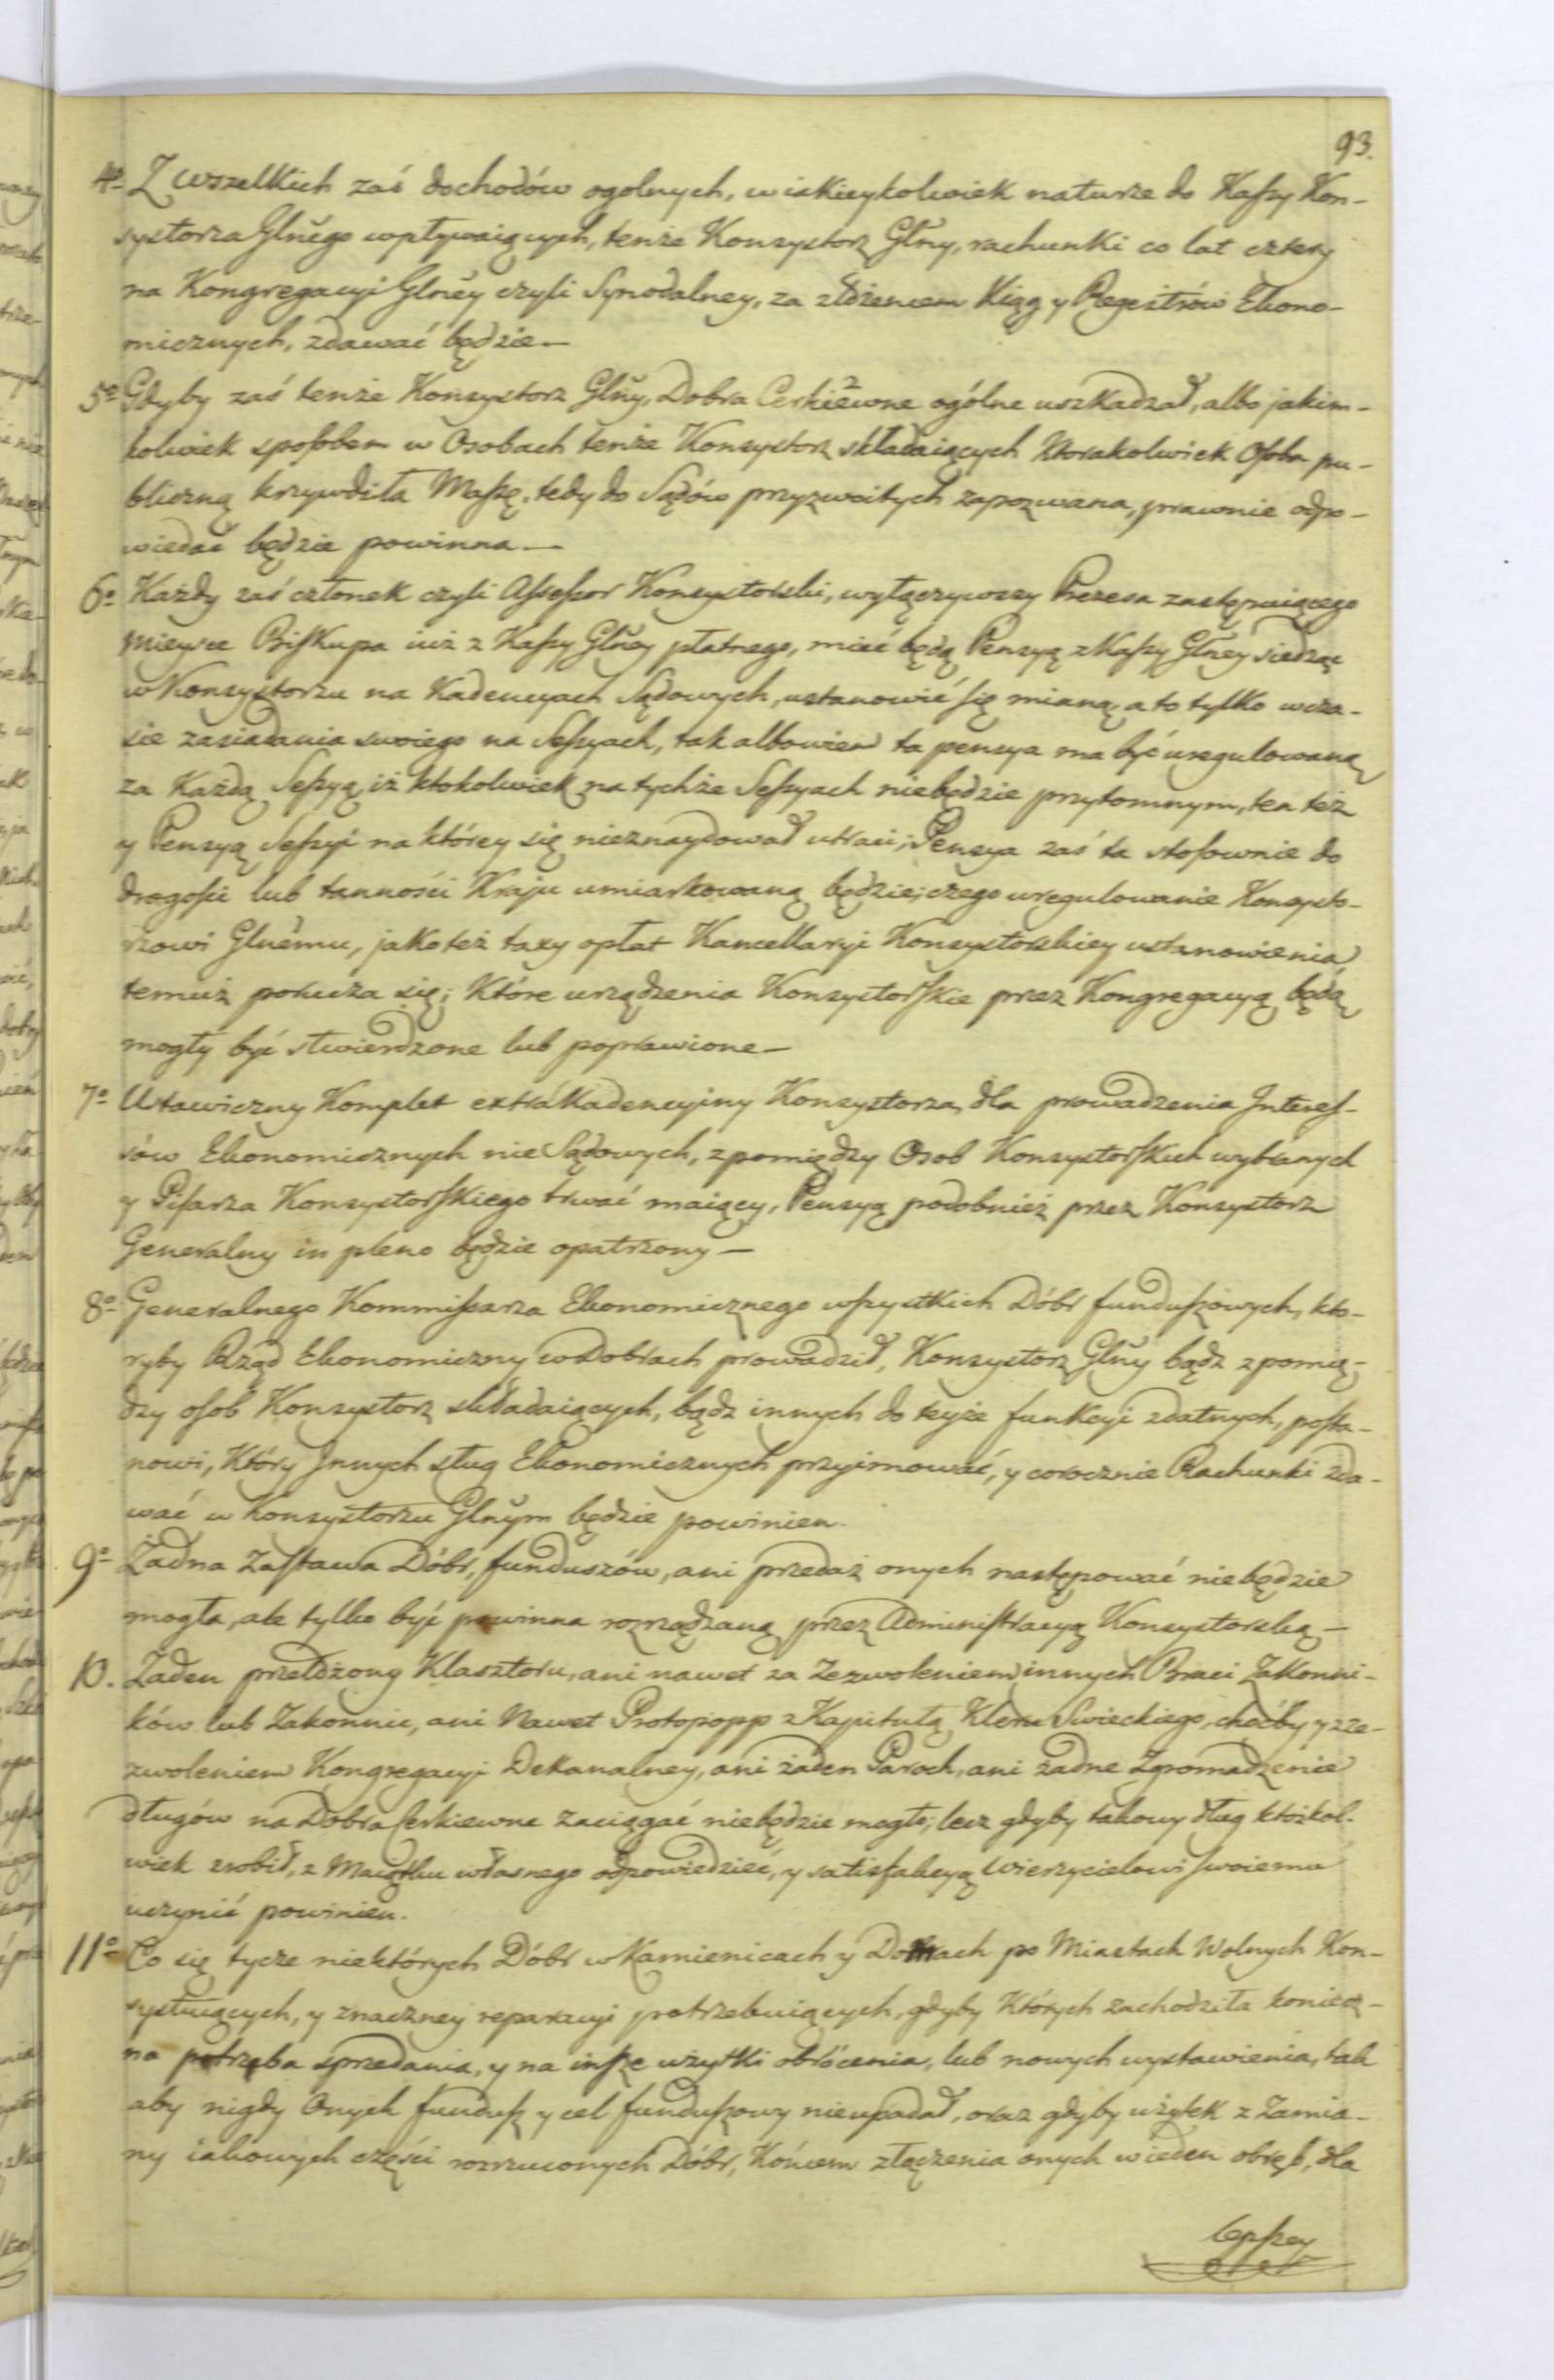 93.
4º Z wszelkich zaś dochodów ogolnych, w iakieykolwiek naturze do Kaſsy Kon-
systorza Glnego wpływaiących, tenże Konsystorz Glny, rachunki co lat cztery
na Kongregacyi Glney czyli Synodalney, za złożeniem Xiąg y Regestrów Ekono-
micznych, zdawać będzie—
5º Gdyby zaś tenże Konsystorz Glny, Dobra Cerkiewne ogólne uszkadzał, albo jakim-
kolwiek spoſobem w Osobach tenże Konsystorz składaiących Ktorakolwiek Oſoba pu-
bliczną krzywdiła Maſsę, tedy do Sądów przyzwoitych zapozwana, prawnie odpo-
wiedać będzie powinna—
6º Każdy zaś członek czyli Aſseſsor Konsystorski, wyłączywszy Prezesa zastępuiącego
mieysce Biſkupa iuż z Kaſsy Glney płatnego, mieć będą Pensyą z Kaſsy Glney siedząc
w Konsystorzu na Kadencyach Sądowych, ustanowić ſię mianą, a to tylko w cza-
sie zasiadania swoiego na Seſsyach, tak albowiem ta pensya ma być uregulowaną
za Każdą Seſsyą, iż ktokolwiek na tychże Seſsyach niebędzie przytomnym, ten też
y Pensyą Seſsyi na którey się nieznaydował utraci; Pensya zaś ta stoſownie do
drogoſci lub tanności Kraju umiarkowaną będzie; czego uregulowanie Konsysto-
rzowi Glnemu, jako też taxy opłat Kancellaryi Konsystorskiey ustanowienia
temuż porucza się; Które urządzenia Konsystorſkie przez Kongregacyą będą
mogły być stwierdzone lub poprawione—
7º Ustawiczny Komplet extrakadencyiny Konsystorza, dla prowadzenia Intereſ-
sów Ekonomicznych nie Sądowych, z pomiędzy Osob Konsystorſkich wybranych
y Piſarza Konsystorſkiego trwać maiący, Pensyą podobnież przez Konsystorz
Generalny in pleno będzie opatrzony—
8º Generalnego Kommiſsarza Ekonomicznego wſzystkich Dóbr funduſzowych, kto-
ryby Rząd Ekonomiczny w Dobrach prowadził, Konsystorz Glny bądz z pomię-
dzy oſob Konsystorz składaiących, bądz innych do teyże funkcyi zdatnych, poſta-
nowi, Który Innych sług Ekonomicznych przyimować, y corocznie Rachunki zda-
wać w Konsystorzu Glnym będzie powinien.
9º Żadna Zaſtawa Dóbr, funduszów, ani przedaż onych następować niebędzie
mogła, ale tylko być powinna rozrządzaną przez Adminiſtracyą Konsystorską—
10. Żaden przełożony Klasztoru, ani nawet za Zezwoleniem innych Braci Zakonni-
ków lub Zakonnic, ani Nawet Protopopp z Kapitułą Kleru Swieckiego, choćby y z ze-
zwoleniem Kongregacyi Dekanalney, ani żaden Paroch, ani żadne Zgromadzenie
długów na Dobra Cerkiewne zaciągać niebędzie mogło; lecz gdyby takowy dług ktożkol-
wiek zrobił, z Maiątku własnego odpowiedzieć, y satisfakcyą Wierzycielowi ſwoiemu
uczynić powinien.
11º Co się tycze niektórych Dóbr w Kamienicach y Domach po Miastach Wolnych Kon-
systuiących, y znaczney reparacyi potrzebuiących, gdyby Których zachodziła koniecz-
na potrzeba sprzedania, y na inſze użytki obrócenia, lub nowych wystawienia, tak
aby nigdy Onych funduſz y cel funduſzowy nieupadał, oraz gdyby użytek z Zamia-
ny iakowych części rozrzuconych Dóbr, Końcem złączenia onych w ieden obręb, dla
lepſzey